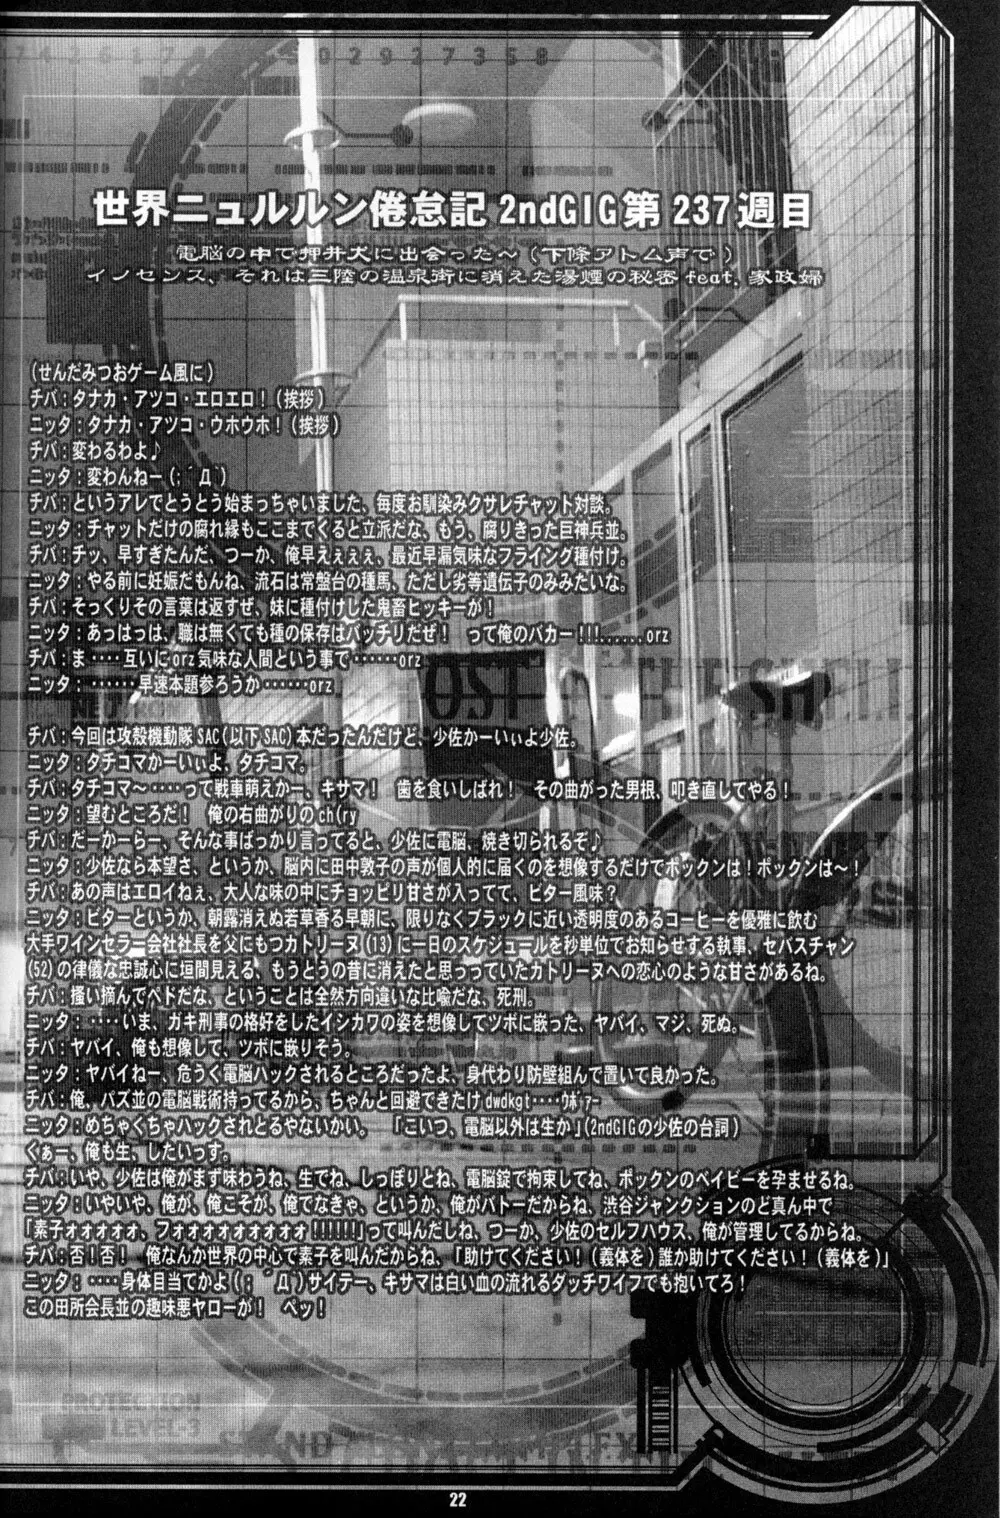 7 4 2 6 1 7 8
0 2 9 2 7 3 5 8
世界ニュルルン倦怠記 2ndGIG 第 237 週目
電脳の中で押井犬に出会った～(下條アトム声で)
イノセンス、それは三陸の温泉街に消えた湯煙の秘密 feat. 家政婦
(せんだみつおゲーム風に)
チバ：タナカ・アツコ・エロエロ！(挨拶)
ニッタ：タナカ・アツコ・ウホウホ！(挨拶)
チバ：変わるわよ♪
ニッタ：変わんねー(；´Д`)
チバ：というアレでとうとう始まっちゃいました、毎度お馴染みクサレチャット対談。
ニッタ：チャットだけの腐れ縁もここまでくると立派だな、もう、腐りきった巨神兵並。
チバ：チッ、早すぎたんだ、つーか、俺早えぇぇぇ、最近早漏気味なフライング種付け。
ニッタ：やる前に妊娠だもんね、流石は常盤台の種馬、ただし劣等遺伝子のみみたいな。
チバ：そっくりその言葉は返すぜ、妹に種付けした鬼畜ヒッキーが！
ニッタ：あっはっは、職は無くても種の保存はバッチリだぜ！　って俺のバカー!!!……orz
チバ：ま‥‥互いにorz気味な人間という事で‥‥‥orz
ニッタ：‥‥‥早速本題参ろうか‥‥‥orz
チバ：今回は攻殻機動隊SAC(以下SAC)本だったんだけど、少佐かーいぃよ少佐。
ニッタ：タチコマかーいぃよ、タチコマ。
チバ：タチコマ～‥‥‥って戦車萌えかー、キサマ！　歯を食いしばれ！　その曲がった男根、叩き直してやる！
ニッタ：望むところだ！　俺の右曲がりのch(ry
チバ：だーかーらー、そんな事ばっかり言ってると、少佐に電脳、焼き切られるぞ♪
ニッタ：少佐なら本望さ、というか、脳内に田中敦子の声が個人的に届くのを想像するだけでボックンは！ボックンは～！
チバ：あの声はエロイねぇ、大人な味の中にチョッピリ甘さが入ってて、ビター風味？
ニッタ：ビターというか、朝露消えぬ若草香る早朝に、限りなくブラックに近い透明度のあるコーヒーを優雅に飲む
大手ワインセラー会社社長を父にもつカトリーヌ(13)に一日のスケジュールを秒単位でお知らせする執事、セバスチャン
(52)の律儀な忠誠心に垣間見える、もうとうの昔に消えたと思っっていたカトリーヌへの恋心のような甘さがあるね。
チバ：掻い摘んでペドだな、ということは全然方向違いな比喩だな、死刑。
ニッタ：‥‥‥いま、ガキ刑事の格好をしたイシカワの姿を想像してツボに嵌った、ヤバイ、マジ、死ぬ。
チバ：ヤバイ、俺も想像して、ツボに嵌りそう。
ニッタ：ヤバイねー、危うく電脳ハックされるところだったよ、身代わり防壁組んで置いて良かった。
チバ：俺、バズ並の電脳戦術持ってるから、ちゃんと回避できたけdwdkgt‥‥ｳﾎﾞｧｰ
ニッタ：めちゃくちゃハックされとるやないかい。　「こいつ、電脳以外は生か」(2ndGIGの少佐の台詞)
くぁー、俺も生、したいっす。
チバ：いや、少佐は俺がまず味わうね、生でね、しっぽりとね、電脳錠で拘束してね、ボックンのベイビーを孕ませるね。
ニッタ：いやいや、俺が、俺こそが、俺でなきゃ、というか、俺がバトーだからね、渋谷ジャンクションのど真ん中で
「素子ォォォォォ、フォォォォォォォォォ!!!!!!」って叫んだしね、つーか、少佐のセルフハウス、俺が管理してるからね。
チバ：否！否！　俺なんか世界の中心で素子を叫んだからね、「助けてください！(義体を)誰か助けてください！(義体を)」
ニッタ：‥‥‥身体目当てかよ(；´Д`)サイテー、キサマは白い血の流れるダッチワイフでも抱いてろ！
この田所会長並の趣味悪ヤローが！　ペッ！
PROTECTION
LEVEL-3
22